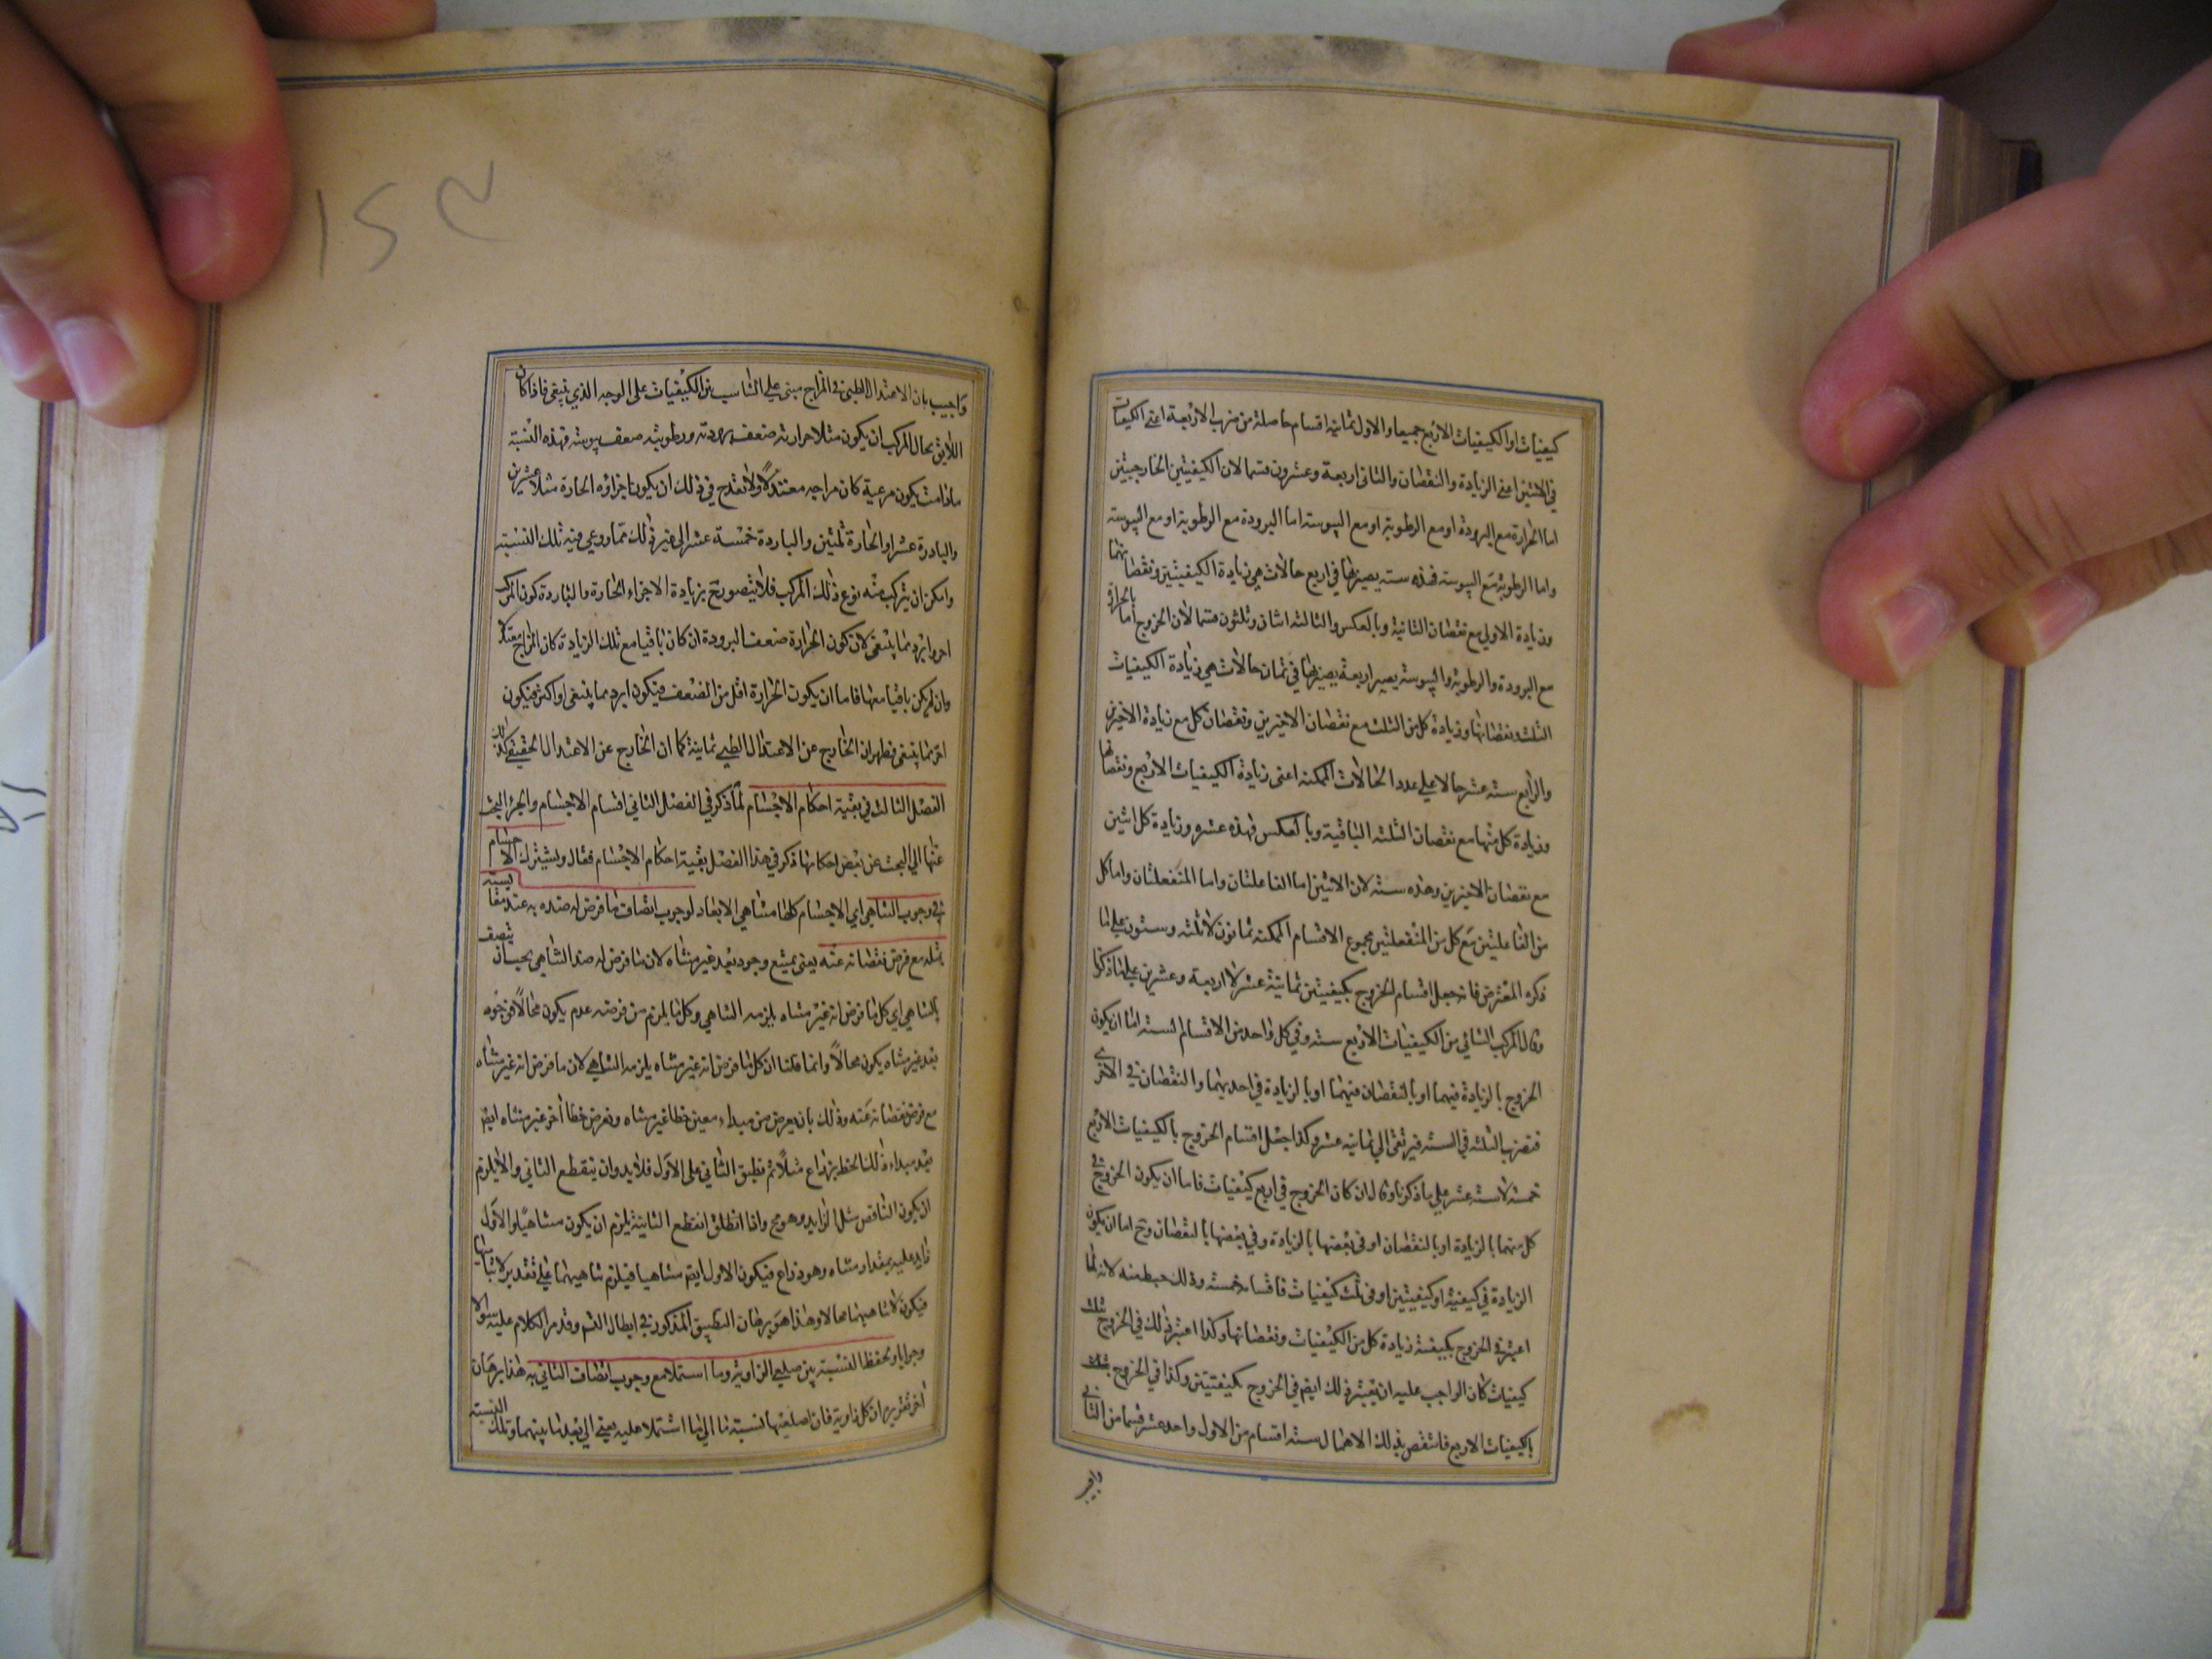 كيفيات او الكيفيات الاربع جميعا والاول ثمانية اقسام حاصلة من ضرب الاربعة اعنى الكيفيات
في الاثنين اعنى الزيادة والنقصان والثاني اربعة وعشرون قسما لان الكيفيتين الخارجيتين
اما الحرارة مع البرودة او مع الرطوبة او مع اليبوسة اما البرودة مع الرطوبة او مع اليبوسة
واما الرطوبة مع اليبوسة فهذه ستة يصير بها في اربع حالات هي زيادة الكيفيتين ونقصانهما
وزيادة الاولى مع نقصان الثانية وبالعكس والثالثة اثنان وثلثون قسما لان الخروج اما بالحرارة
مع البرودة والرطوبة واليبوسة يصير اربعة يصير بها في ثمان حالات هي زيادة الكيفيات
الثلث ونقصانها وزيادة كل من الثلث مع نقصان الاخيرين ونقصان كل مع زيادة الاخيرين
والرابع ستة عشر حالا على عدد الحالات الممكنة اعنى زيادة الكيفيات الاربع ونقصانها
وزيادة كل منها مع نقصان الثلثة الباقية وبالعكس فهذه عشرة وزيادة كل اثنين
مع نقصان الاخيرين وهذه ستة لان الاثنين اما الفاعلتان واما المنفعلتان واما كل
من الفاعلتين مع كل من المنفعلتين فمجموع الاقسام الممكنة ثمانون لا ثلثة وستون على ما
ذكره المعترض فانه جعل اقسام الخروج بكيفيتين ثمانية عشر لا اربعة وعشرين على ما ذكرنا
وقال المركب الثنائي من الكيفيات الاربع ستة وفي كل واحد من الاقسام الستة اما ان يكون
الخروج بالزيادة فيهما او بالنقصان فيهما او بالزيادة في احديهما والنقصان في الاخرى
فتضرب الثلثة في الستة فيرتقى الى ثمانية عشر وكذا جعل اقسام الخروج بالكيفيات الاربع
خمسة لا ستة عشر على ما ذكرنا وقال ان كان الخروج في اربع كيفيات فاما ان يكون الخروج في
كل منهما بالزيادة او بالنقصان او في بعضها بالزيادة وفي بعضها بالنقصان وح اما ان يكون
الزيادة في كيفية او كيفيتين او في ثلث كيفيات فاقسامه خمسة وذلك خبط منه لانه لما
اعتبر في الخروج بكيفية زيادة كل من الكيفيات ونقصانها وكذا اعتبر ذلك في الخروج بثلث
كيفيات كان الواجب عليه ان يعتبر ذلك ايضم في الخروج بكيفيتين وكذا في الخروج
بالكيفيات الاربع فانتقص بذلك الاهمال ستة اقسام من الاول واحد عشر قسما من الثاني
واجيب بان الاعتدال الطبى في المزاج مبنى على التناسب بين الكيفيات على الوجه الذي ينبغى فاذا كان
اللايق بحال المركب ان يكون مثلا حرارته ضعف برودته ورطوبته ضعف يبوسته فهذه النسبة
مادامت يكون مرعية كان مزاجه معتدلا ولا يقدح في ذلك ان يكون اجزاؤه الحارة مثلا عشرين
والباردة عشرا او الحارة ثلثين والباردة خمسة عشر الى غير ذلك مما روعي فيه تلك النسبة
وامكن ان يتركب منه نوع ذلك المركب فلا يتصور ح بزيادة الاجزاء الحارة والباردة كون المركب
احر وابرد مما ينبغى لان كون الحرارة ضعف البرودة ان كان باقيا مع تلك الزيادة كان المزاج معتدلا
وان لم يكن باقيا معها فاما ان يكون الحرارة اقل من الضعف فيكون ابرد مما ينبغى او اكثر فيكون
احر مما ينبغى فظهر ان الخارج عن الاعتدال الطبي ثمانية كما ان الخارج عن الاعتدال الحقيقي كذلك
الفصل الثالث في بقية احكام الاجسام لما ذكر في الفصل الثاني اقسام الاجسام وانجر البحث
عنها الى البحث عن بعض احكامها ذكر في هذا الفصل بقية احكام الاجسام فقال ويشترك الاجسام
في وجوب التناهي اي الاجسام كلها متناهي الابعاد لوجوب اتصاف ما فرض له ضده به عند مقايسته
بمثله مع فرض نقصانه عنه يعنى يمتنع وجود بعد غير متناه لان ما فرض له ضد التناهي يجب ان يتصف
بالتناهي اي كل ما فرض انه غير متناه يلزمه التناهي وكل ما يلزم من فرضه عدمه يكون محالا فوجود
بعد غير متناه يكون محالا وانما قلنا ان كل ما فرض انه غير متناه يلزمه التناهي لان ما فرض انه غير متناه
مع فرض نقصانه عنه وذلك بان يفرض من مبداء معين خطا غير متناه ونفرض خطا اخر غير متناه ايضم
بعد مبداء ذلك الخط بذراع مثلا ثم نطبق الثاني على الاول فلا بد وان ينقطع الثاني والا يلزم
ان يكون الناقص مثل الزايد وهو مح واذا انقطع الثانية يلزم ان يكون متناهيا والاول
زايد عليه بمقدار متناه وهو ذراع فيكون الاول ايضم متناهيا فيلزم تناهيهما على تقدير لا تناهيهما
فيكون لا تناهيهما محالا وهذا هو برهان التطبيق المذكور في ابطال التسم وقد مر الكلام عليه سؤالا
وجوابا ولحفظ النسبة بين ضلعي الزاوية وما اشتملا مع وجوب اتصاف الثاني به هذا برهان
اخر تقريره ان كل زاوية فان لضلعيها نسبة ما الى ما اشتملا عليه يعنى الى بعد ما بينهما وتلك النسبة